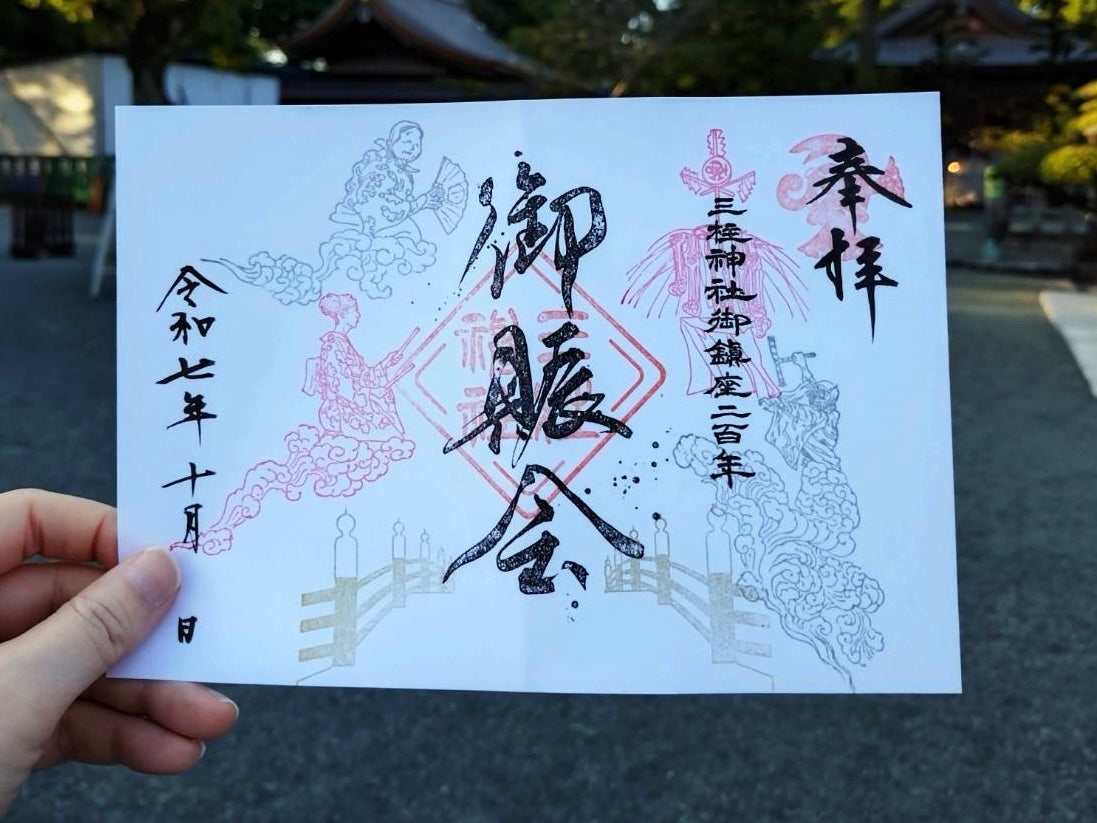 奉拝
三柱神社御鎮座二百年
御賑会
三柱
神社
令和七年 十月 日